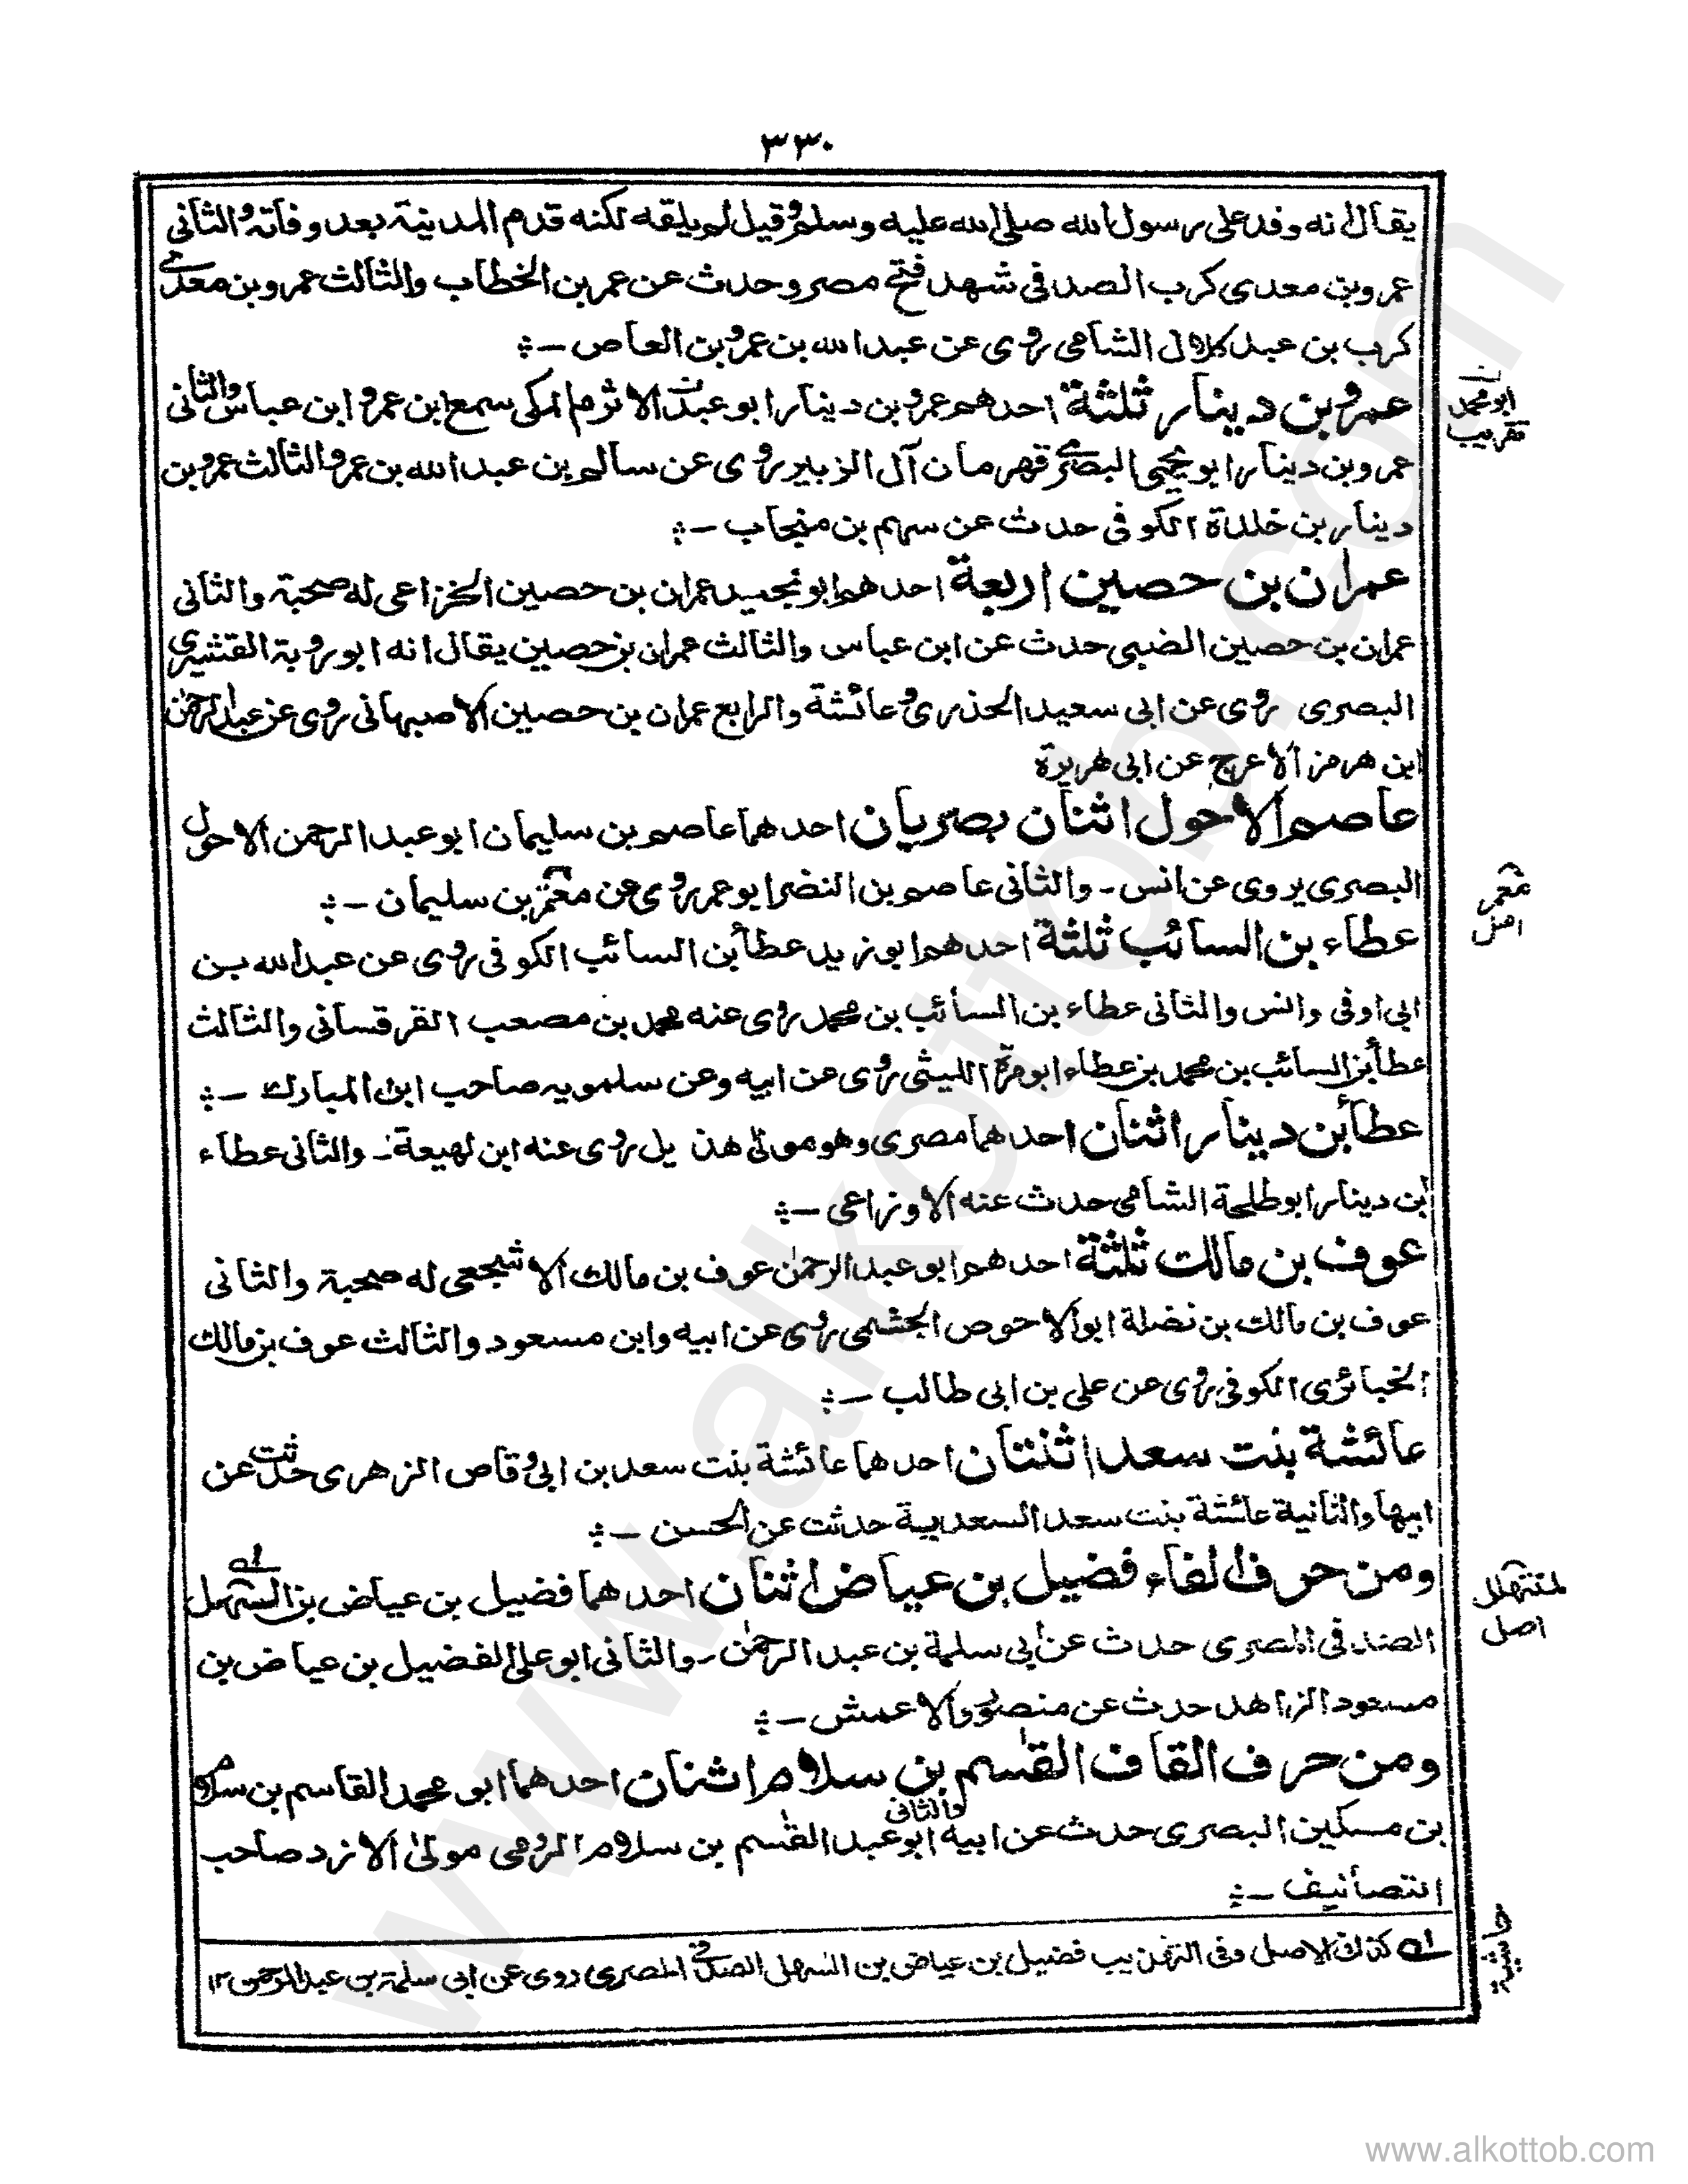 ٣٣٠
يقال انه وفد على رسول الله صلى الله عليه وسلم وقيل لم يلقه لكنه قدم المدينة بعد وفاته والثانى
عمرو بن معدى كرب الصدفى شهد فتح مصر وحدث عن عمر بن الخطاب والثالث عمرو بن معدى
كرب بن عبد كلال الشامى روى عن عبد الله بن عمرو بن العاص ـ
عمرو بن دينار ثلثة احدهم عمرو بن دينار ابو عبد الاثرم المكى سمع ابن عمر و ابن عباس والثانى
ابو محمد
تقريب
عمرو بن دينار ابو يحيى البصرى قهرمان آل الزبير روى عن سالم بن عبد الله بن عمر والثالث عمرو بن
دينار بن خلدة الكوفى حدث عن سهم بن منجاب ـ
عمران بن حصين اربعة احدهم ابو نجيد عمران بن حصين الخزاعى له صحبة والثانى
عمران بن حصين الضبى حدث عن ابن عباس والثالث عمران بن حصين يقال انه ابو روبة القشيرى
البصرى روى عن ابى سعيد الخذرى وعائشة والرابع عمران بن حصين الاصبهانى روى عن عبد الرحمن
ابن هرمز الاعرج عن ابى هريرة
عاصم الاحول اثنان بصريان احدهما عاصم بن سليمان ابو عبد الرحمن الاحول
البصرى يروى عن انس ـ والثانى عاصم بن النضر ابو عمر روى عن معتمر بن سليمان ـ
معمر
اصل
عطاء بن السائب ثلثة احدهم ابو زيد عطأ بن السائب الكوفى روى عن عبد الله بن
ابى اوفى وانس والثانى عطاء بن السأئب بن محمد روى عنه محمد بن مصعب القرقسانى والثالث
عطأ بن السائب بن محمد بن عطاء ابو مرة الليثى روى عن ابيه وعن سلمويه صاحب ابن المبارك ـ
عطأ بن دينار اثنان احدهما مصرى وهو مولى هذيل روى عنه ابن لهيعة ـ والثانى عطاء
بن دينار ابو طلحة الشامى حدث عنه الاوزاعى ـ
عوف بن مالك ثلثة احدهم ابو عبد الرحمن عوف بن مالك الاشجعى له صحبة والثانى
عوف بن مالك بن نضلة ابو الاحوص الجشمى روى عن ابيه وابن مسعود والثالث عوف بن مالك
الخبائرى الكوفى روى عن على بن ابى طالب ـ
عائشة بنت سعد اثنتان احدهما عائشة بنت سعد بن ابى وقاص الزهرى حدثت عن
ابيها والثانية عائشة بنت سعد السعديبة حدثت عن الحسن ـ
ومن حرف الفاء فضيل بن عياض اثنان احدهما فضيل بن عياض بن السهل
اصل
الصدفى المصرى حدث عن ابى سلمة بن عبد الرحمن ـ والثانى ابو على الفضيل بن عياض بن
مسعود الزاهد حدث عن منصور والاعمش ـ
ومن حرف القاف القسم بن سلام اثنان احدهما ابو محمد القاسم بن سلام
بن مسكين البصرى حدث عن ابيه والثانى ابو عبد القسم بن سلام الرومى مولى الازد صاحب
التصأنيف ـ
حاشية
له كذا فى الاصل وفى التهذيب فضيل بن عياض بن السهل الصدفى المصرى روى عن ابى سلمة بن عبد الرحمن ١٢
www.alkottob.com
www.alkottob.com